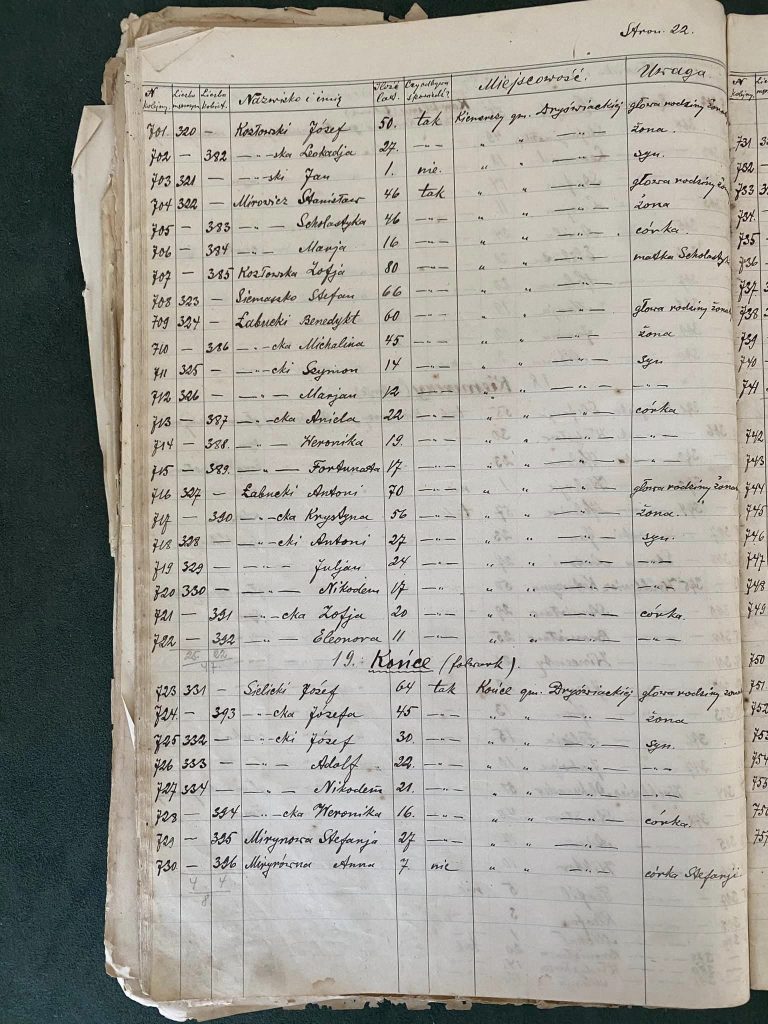 Stron. 22.
N kolejny. Liczba mężczyzn Liczba kobiet. Nazwisko i imię Ilość lat. Czy odbywa spowiedź? Miejscowość. Uwaga
701. 320 — Kozłowski Józef 50. tak Kiemieszy gm. Dryświackiej głowa rodziny żona
702 — 382 —„—ska Leokadja 27. —„— „ „ —„— żona.
703 321 — —„—ski Jan 1. nie. „ „ —„— syn.
704 322 — Mirowicz Stanisław 46 tak „ „ —„— głowa rodziny żo
705 — 383 —„— Scholastyka 46 —„— „ „ —„— żona
706 — 384 —„— Marja 16 —„— „ „ —„— córka.
707 — 385 Kozłowska Zofja 80 —„— „ „ —„— matka Scholastyk
708 323 — Siemaszko Stefan 66 —„— „ „ —„—
709 324 — Łabucki Benedykt 60 —„— „ „ —„— głowa rodziny żona
710 386 —„—cka Michalina 45 —„— „ „ —„— żona
711 325 — —„—cki Szymon 14 —„— „ „ —„— syn
712 326 — —„— Marjan 12 —„— „ „ —„— —„—
713 — 387 —„—cka Aniela 22 —„— „ „ —„— córka
714 — 388. —„— Weronika 19. —„— „ „ —„— —„—
715 — 389. —„— Fortunata 17. —„— „ „ —„— —„—
716 327 — Łabucki Antoni 70 —„— „ „ —„— głowa rodziny żona
717 390 —„—cka Krystyna 56 —„— „ „ —„— żona.
718 328 — —„—cki Antoni 27 —„— „ „ —„— syn.
719 329 — —„— Juljan 24 —„— „ „ —„— —„—
720 330 — —„— Nikodem 17 —„— „ „ —„— —„—
721 — 391 —„—cka Zofja 20 —„— „ „ —„— córka.
722 — 392 —„— Eleonora 11 —„— „ „ —„— —„—
25 22
47
19. Końce (folwark).
723 331 — Sielicki Józef 64 tak Końce gm. Dryświackiej głowa rodziny żona
724. — 393 —„—cka Józefa 45 —„— „ „ —„— żona
725 332 — —„—cki Józef 30. —„— „ „ —„— syn.
726 333 — —„— Adolf 22. —„— „ „ —„— —„—
727 334 — —„— Nikodem 21. —„— „ „ —„— —„—
728 — 394 —„—cka Weronika 16. —„— „ „ —„— córka.
729 — 395 Mirynowa Stefanja 27 —„— „ „ —„—
730 — 396 Anna 7 nie „ „ —„— córka Stefanji
4 4
8
N kolejny. Liczba
731.
732
733
734.
735
736
737
738
739
740
741
742
743
744
745
746
747
748
749
750
751
752
753
754
755
756
757